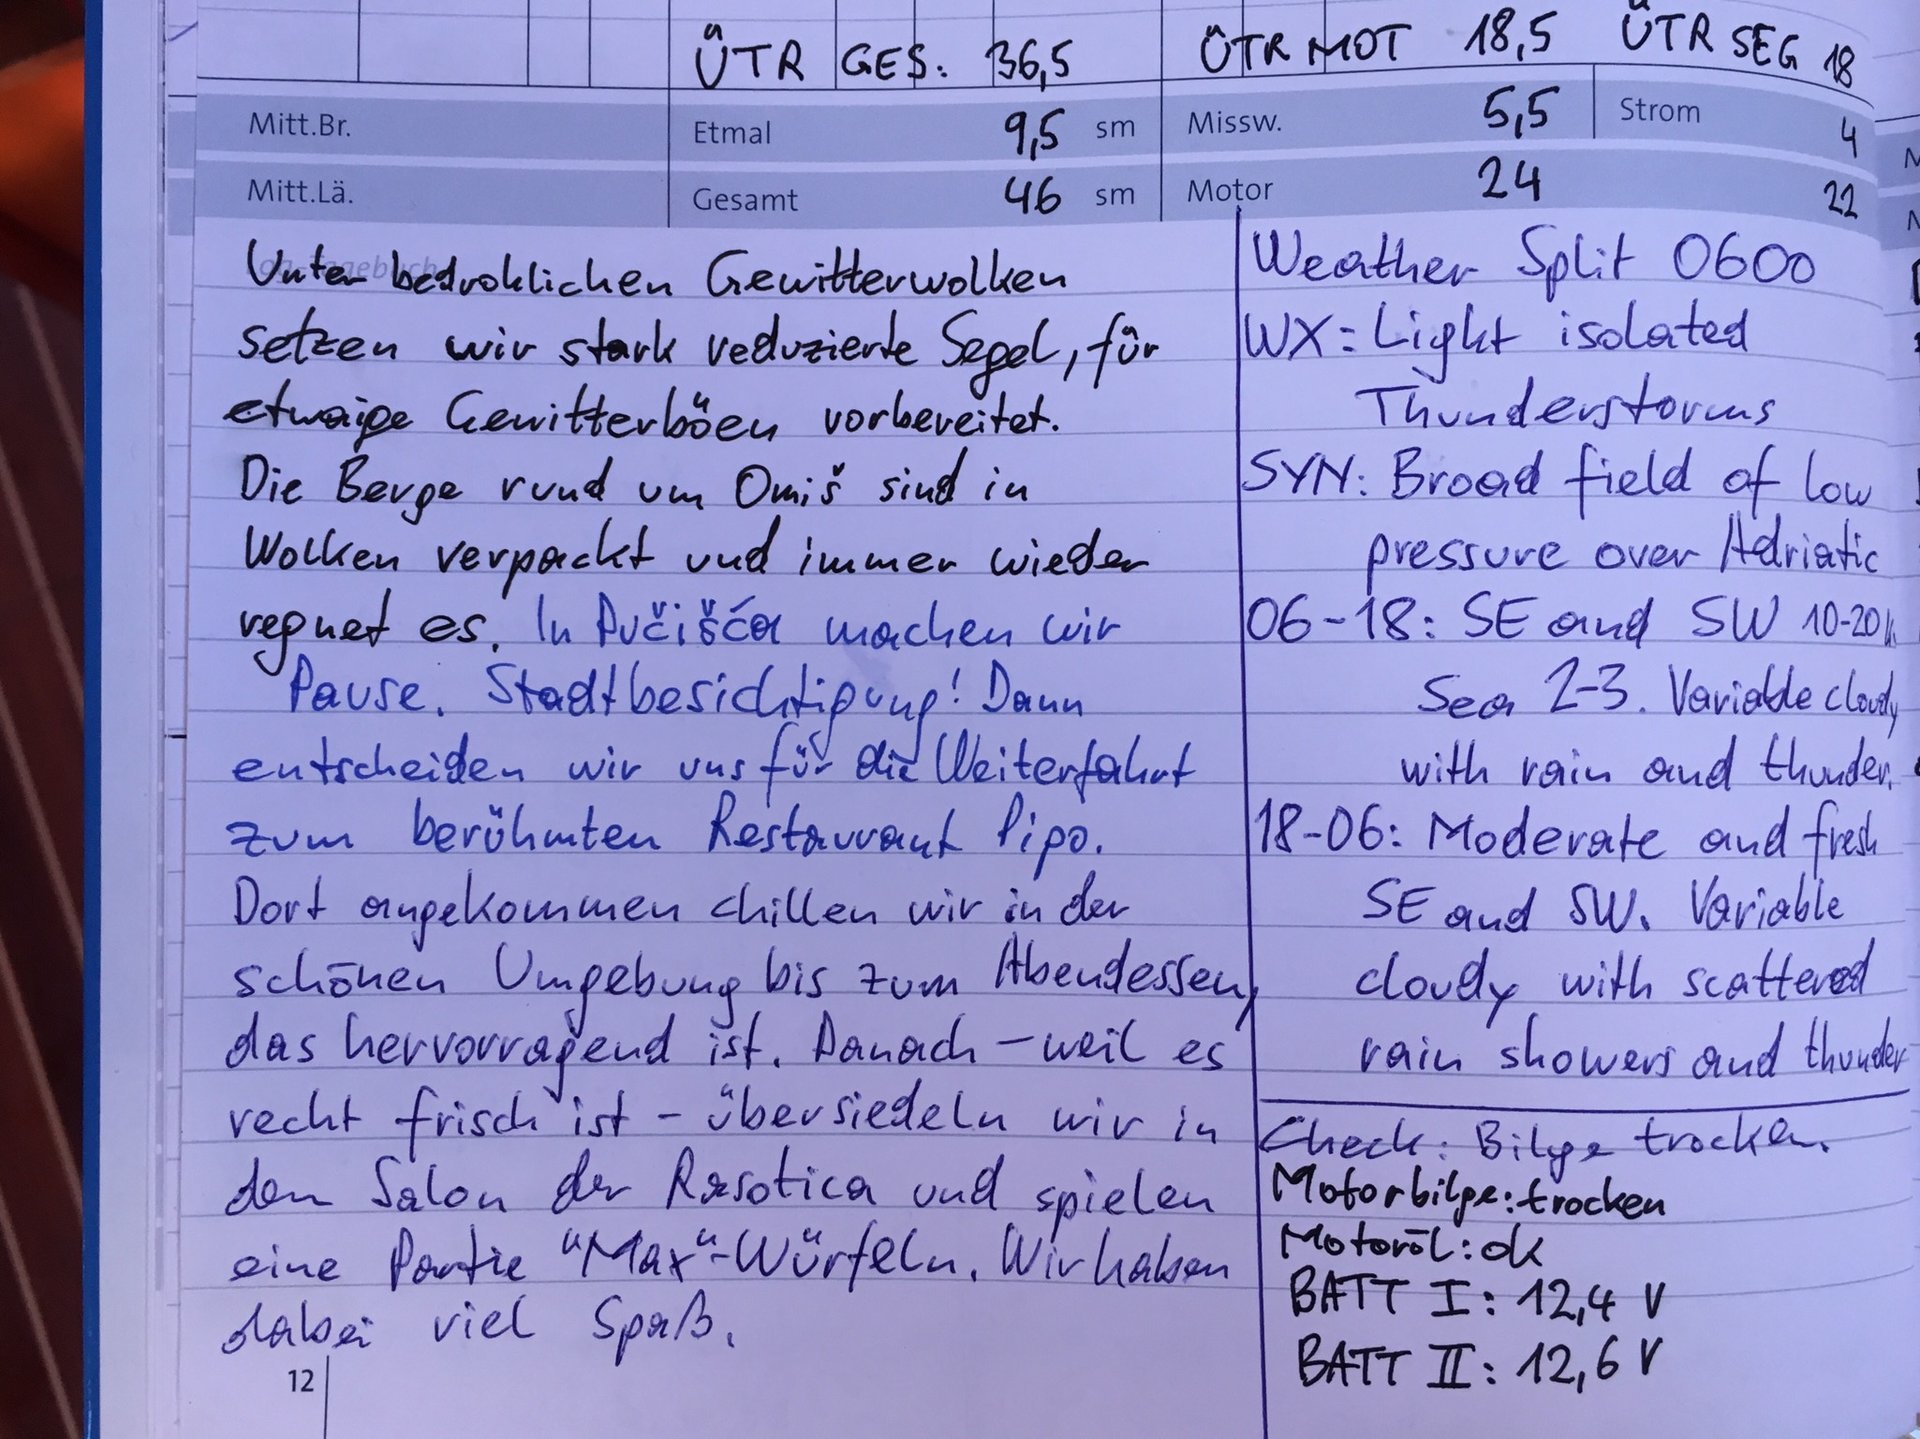 ÜTR GES: 36,5 ÜTR MOT 18,5 ÜTR SEG 18
Mitt.Br. Etmal 9,5 sm Missw. 5,5 Strom 4
Mitt.Lä. Gesamt 46 sm Motor 24 22
Unter bedrohlichen Gewitterwolken
setzen wir stark reduzierte Segel, für
etwaige Gewitterböen vorbereitet.
Die Berge rund um Omiš sind in
Wolken verpackt und immer wieder
regnet es. In Pučišća machen wir
Pause. Stadtbesichtigung! Dann
entscheiden wir uns für die Weiterfahrt
zum berühmten Restaurant Pipo.
Dort angekommen chillen wir in der
schönen Umgebung bis zum Abendessen,
das hervorragend ist. Danach - weil es
recht frisch ist - übersiedeln wir in
den Salon der Rasotica und spielen
eine Partie "Max"-Würfeln. Wir haben
dabei viel Spaß.
12
Weather Split 0600
WX: Light isolated
Thunderstorms
SYN: Broad field of low
pressure over Adriatic
06-18: SE and SW 10-20
Sea 2-3. Variable cloudy
with rain and thunder.
18-06: Moderate and fresh
SE and SW. Variable
cloudy with scattered
rain showers and thunder
Check: Bilge trocken.
Motorbilge: trocken
Motoröl: ok
BATT I: 12,4 V
BATT II: 12,6 V